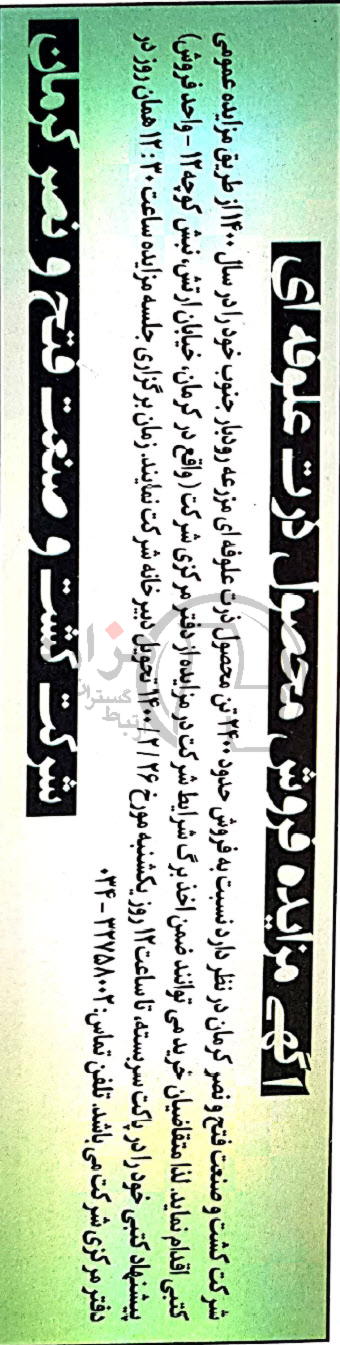 آگهی مزایده فروش محصول ذرت علوفه ای
شرکت کشت و صنعت فتح و نصر کرمان در نظر دارد نسبت به فروش حدود ۲۴۰۰ تن محصول ذرت علوفه ای مزرعه رودبار جنوب خود را در سال ۱۴۰۰ از طریق مزایده عمومی
کتبی اقدام نماید. لذا متقاضیان خرید می توانند ضمن اخذ برگ شرایط شرکت در مزایده از دفتر مرکزی شرکت ( واقع در کرمان، خیابان ارتش، نبش کوچه۱۲ - واحد فروش)
پیشنهاد کتبی خود را در پاکت سربسته، تا ساعت۱۲ روز یکشنبه مورخ ۲۶ /۲ /۱۴۰۰ تحویل دبیرخانه شرکت نمایند. زمان برگزاری جلسه مزایده ساعت ۳۰ : ۱۲ همان روز در
دفتر مرکزی شرکت می باشد. تلفن تماس: ۳۲۷۵۸۰۰۲ - ۰۳۴
شرکت کشت و صنعت فتح و نصر کرمان